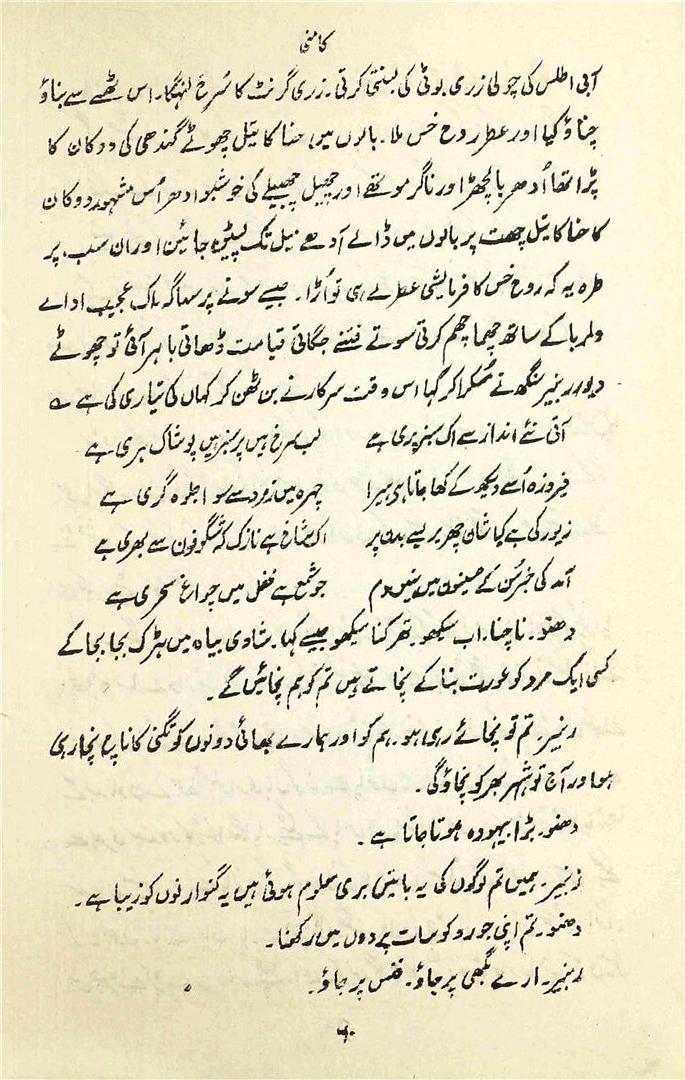 کامنی
آبی اطلس کی چولی زری بوٹی کی بسنتی کرتی۔ زری گرنٹ کا سُرخ لہنگا۔ اس ٹھسے سے بناؤ
چناؤ کیا اور عطر روح خس ملا۔ بالوں میں حنا کا تیل چھوٹے گندھی کی دوکان کا
پڑا تھا اُدھر بالچھڑ اور ناگر موتھے اور چھیل چھبیلے کی خوشبو ادھر اُس مشہور دوکان
کا حنا کا تیل چھت پر بالوں میں ڈالے آدھے میل تک لپٹیں جائیں اور ان سب پر
طرہ یہ کہ روح خس کا فرمایشی عطر لے ہی تو اُڑا۔ جیسے سونے پر سہاگہ اک عجیب اداے
دلربا کے ساتھ چھما چھم کرتی سوتے فتنے جگاتی قیامت ڈھاتی باہر آئی تو چھوٹے
دیور رنبیر سنگھ نے مُسکرا کر کہا اس وقت سرکار نے بن ٹھن کر کہاں کی تیاری کی ہے ؎
آتی نئے انداز سے اک سبز پری ہے لب سرخ ہیں پر سبز ہیں پوشاک ہری ہے
فیروزہ اُسے دیکھ کے کھا جاتا ہی ہیرا چہرہ میں زمرد سے سوا جلوہ گری ہے
زیور کی ہے کیا شان چھریرے بدن پر اک شاخ ہے نازک کہ شگوفوں سے بھری ہے
آمد کی خبر سُن کے حسینوں میں نہیں دم جو شمع ہے محفل میں چراغ سحری ہے
دھنو۔ ناچنا۔ اب سیکھو۔ تھرکنا سیکھو جیسے کہا۔ شادی بیاہ میں ہڑک بجا بجا کے
کسی ایک مرد کو عورت بنا کے نچاتے ہیں تم کو ہم نچائیں گے۔
رنبیر۔ تم تو نچائے رہی ہو۔ ہم کو اور ہمارے بھائی دونوں کو تگنی کا ناچ نچا رہی
ہو اور آج تو شہر بھر کو نچاؤ گی۔
دھنو۔ بڑا بیہودہ ہوتا جاتا ہے۔
رنبیر۔ ہمیں تم لوگوں کی یہ باتیں بری معلوم ہوتی ہیں یہ گنوارنوں کو زیبا ہے۔
دھنو۔ تم اپنی جورو کو سات پردوں میں رکھنا۔
رنبیر۔ ارے بگھی پر جاؤ۔ فنس پر جاؤ۔